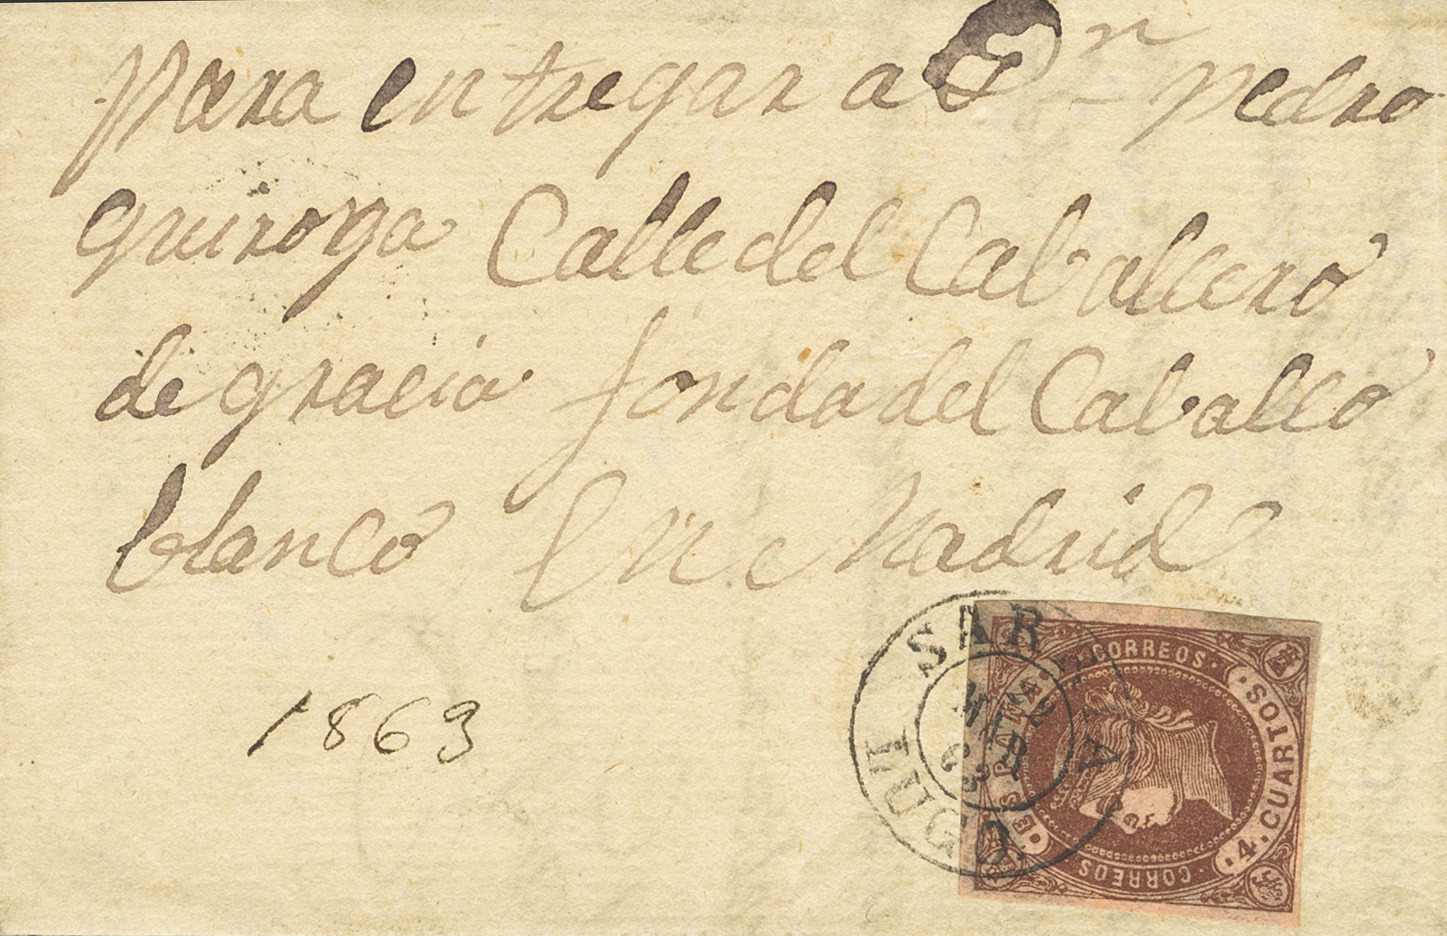 Para entregar a Dn pedro
quiroga Calle del Caballero
de gracia fonda del Caballo
blanco En Madrid
1863
SARRIA
22
MAR
63
LUGO
CORREOS
4 CUARTOS
CORREOS
ESPAÑA